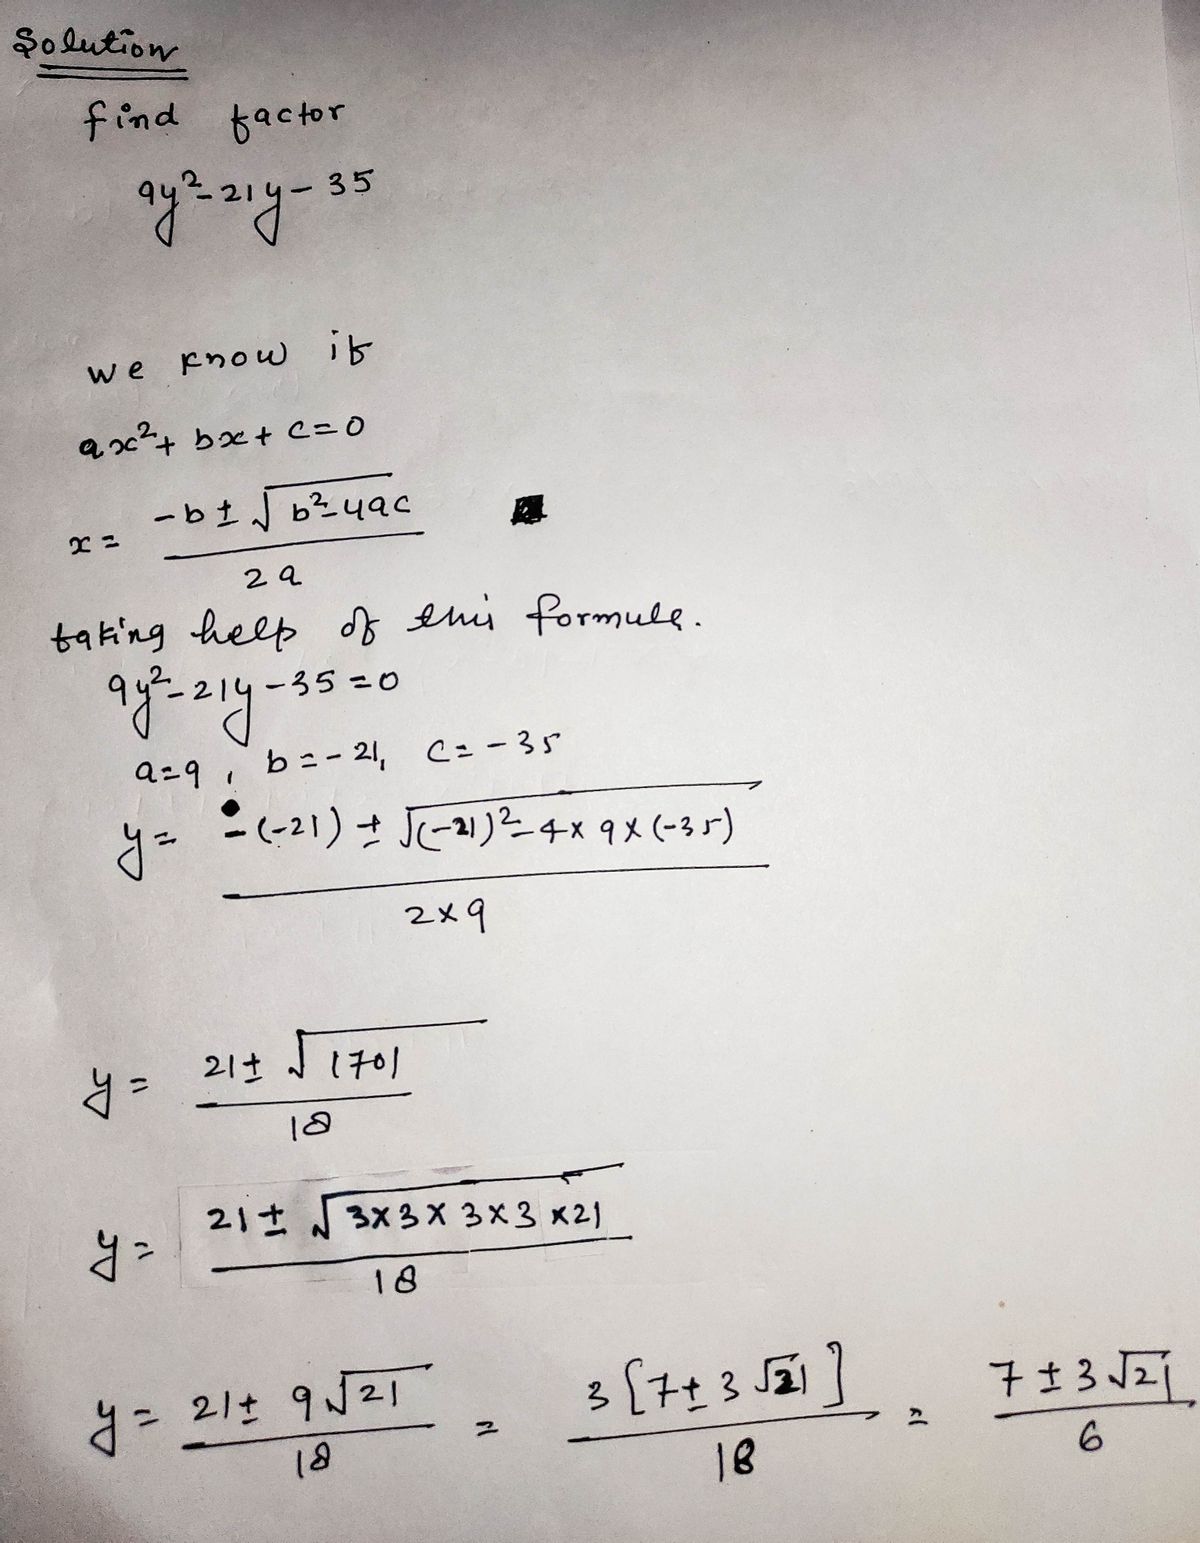 Solution
find factor
9y²-21y-35
we know if
ax²+bx+c=0
x = (-b ± √(b²-4ac)) / 2a
taking help of this formula.
9y²-21y-35=0
a=9, b=-21, c=-35
y = (-(-21) ± √((-21)²-4×9×(-35))) / 2×9
y = (21 ± √1701) / 18
y = (21 ± √(3×3×3×3×21)) / 18
y = (21 ± 9√21) / 18 = 3[7±3√21] / 18 = (7±3√21) / 6